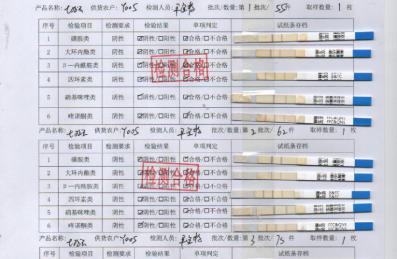 产品名称: 供货农户: Y005 检测人员: 批次/数量:第 1 批次/ 55 取样数量: 1 枚
序号 检验项目 检测要求 检验结果 单项判定 试纸条存档
1 磺胺类 阴性 ☑阴性/□阳性 ☑合格/□不合格
2 大环内酯类 阴性 ☑阴性/□阳性 ☑合格/□不合格
3 β-内酰胺类 阴性 ☑阴性/□阳性 ☑合格/□不合格
4 四环素类 阴性 ☑阴性/□阳性 ☑合格/□不合格
5 硝基咪唑类 阴性 ☑阴性/□阳性 ☑合格/□不合格
6 喹诺酮类 阴性 ☑阴性/□阳性 ☑合格/□不合格
检测合格
产品名称: 供货农户: Y005 检测人员: 批次/数量:第 2 批次/ 62 取样数量: 1 枚
序号 检验项目 检测要求 检验结果 单项判定 试纸条存档
1 磺胺类 阴性 ☑阴性/□阳性 ☑合格/□不合格
2 大环内酯类 阴性 ☑阴性/□阳性 ☑合格/□不合格
3 β-内酰胺类 阴性 ☑阴性/□阳性 ☑合格/□不合格
4 四环素类 阴性 ☑阴性/□阳性 ☑合格/□不合格
5 硝基咪唑类 阴性 ☑阴性/□阳性 ☑合格/□不合格
6 喹诺酮类 阴性 ☑阴性/□阳性 ☑合格/□不合格
检测合格
产品名称: 供货农户: Y005 检测人员: 批次/数量:第 3 批次/ 75 取样数量: 1 枚
序号 检验项目 检测要求 检验结果 单项判定 试纸条存档